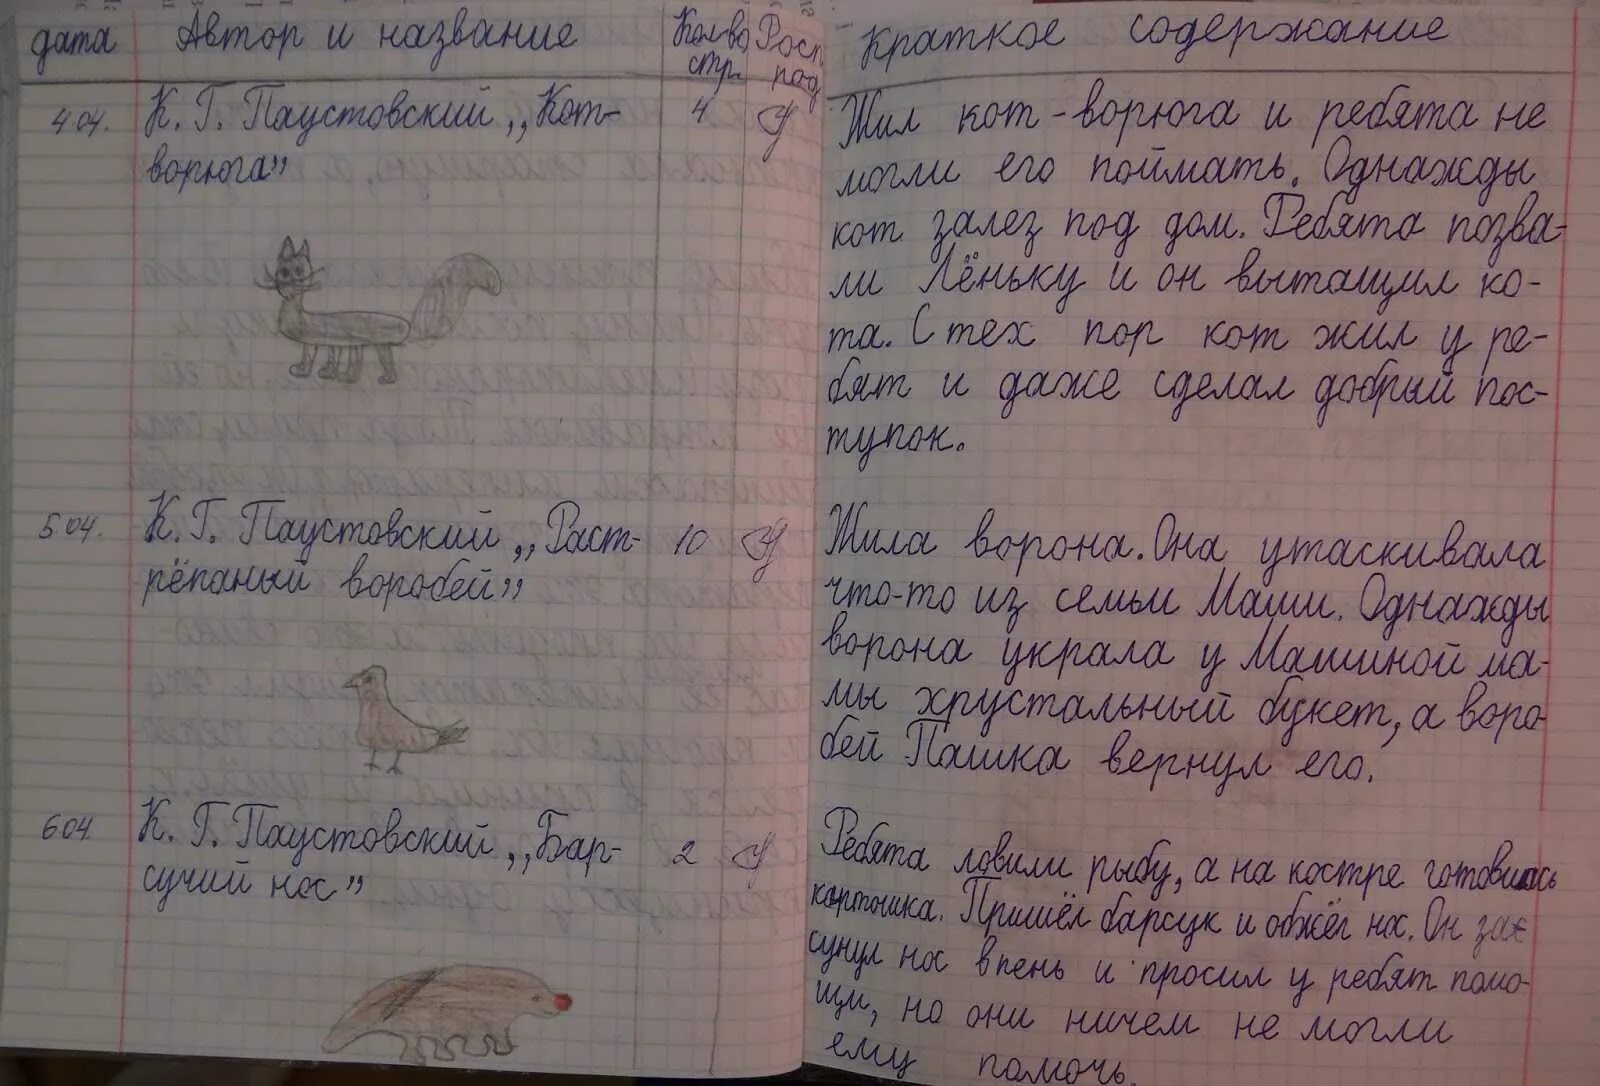 дата Автор и название Кол-во стр. Росп. род. Краткое содержание
4.04. К. Г. Паустовский „Кот-
ворюга”
4
Жил кот-ворюга и ребята не
могли его поймать. Однажды
кот залез под дом. Ребята позва-
ли Лёньку и он вытащил ко-
та. С тех пор кот жил у ре-
бят и даже сделал добрый пос-
тупок.
5.04. К. Г. Паустовский „Раст-
рёпаный воробей”
10
Жила ворона. Она утаскивала
что-то из семьи Маши. Однажды
ворона украла у Машиной ма-
мы хрустальный букет, а воро-
бей Пашка вернул его.
6.04. К. Г. Паустовский „Бар-
сучий нос”
2
Ребята ловили рыбу, а на костре готовилась
картошка. Пришёл барсук и обжёг нос. Он за
сунул нос в пень и просил у ребят помо-
щи, но они ничем не могли
ему помочь.